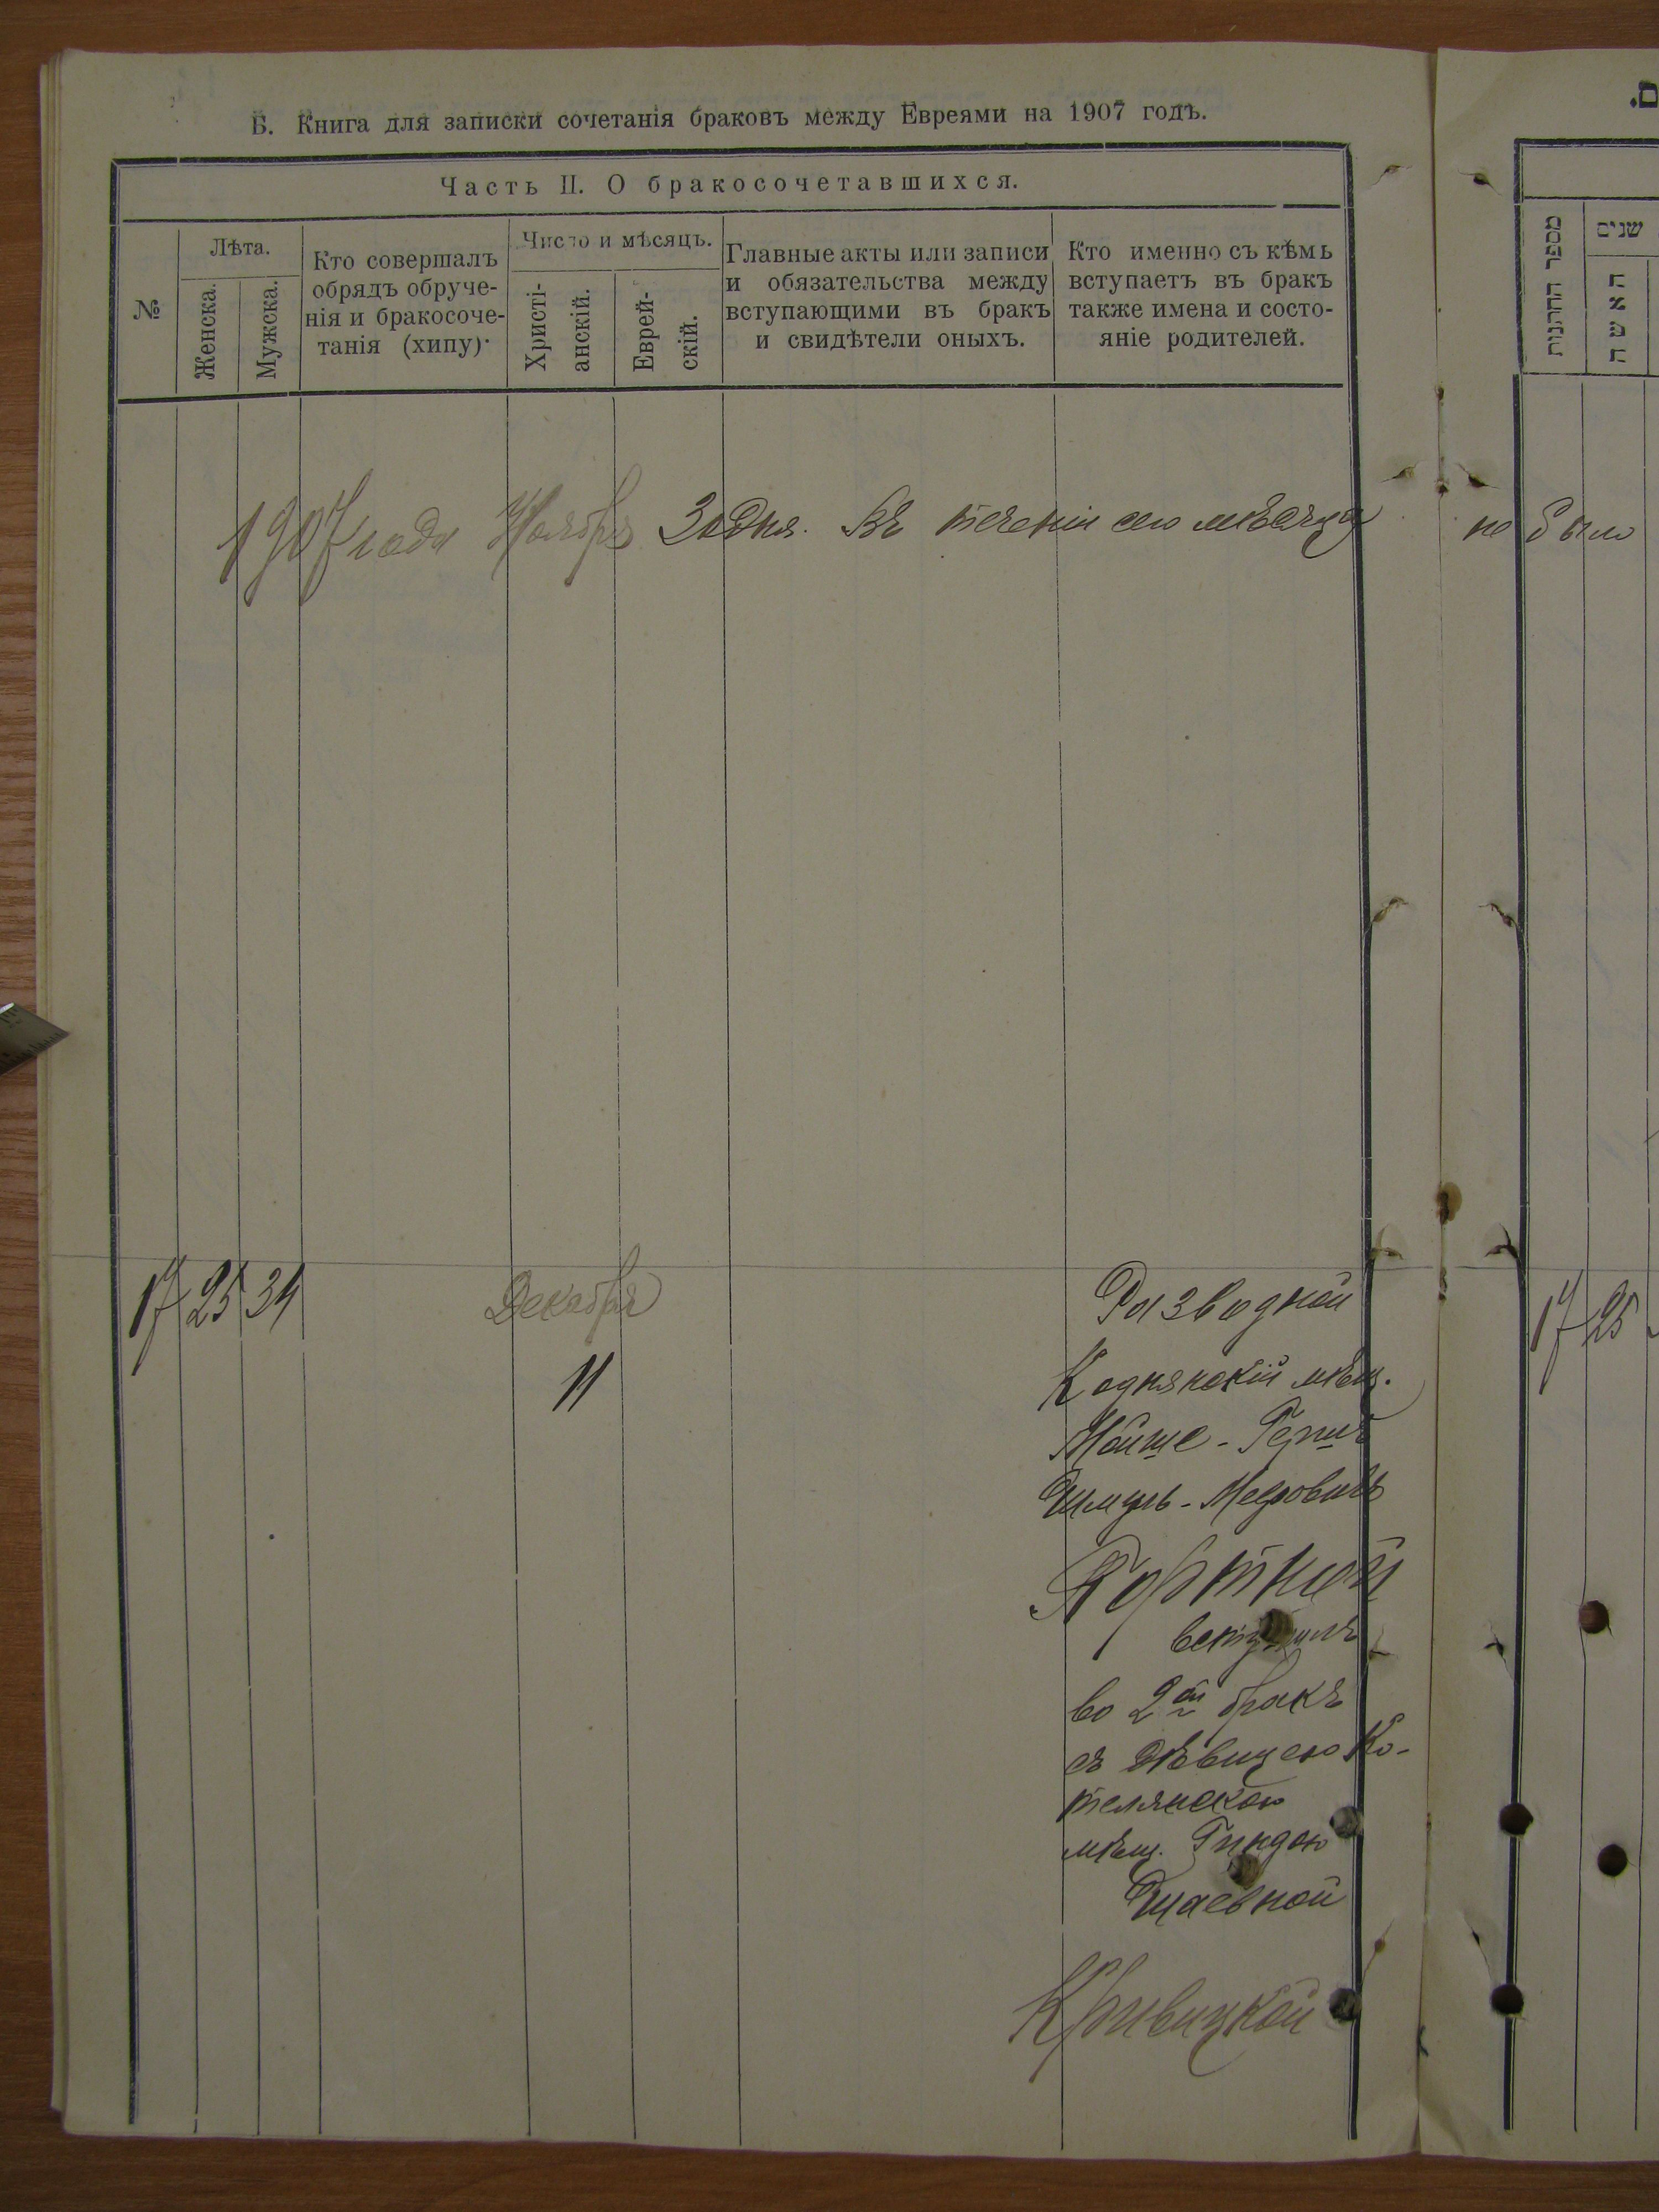 Б. Книга для записки сочетанія браковъ между Евреями на 1907 годъ.
Часть II. О бракосочетавшихся.
№
Лѣта.
Женска.
Мужска.
Кто совершалъ
обрядъ обруче-
нія и бракосоче-
танія (хипу).
Число и мѣсяцъ.
Христі-
анскій.
Еврей-
скій.
Главные акты или записи
и обязательства между
вступающими въ бракъ
и свидѣтели оныхъ.
Кто именно съ кѣмъ
вступаетъ въ бракъ
также имена и состо-
яніе родителей.
מספר החתונות
שנים
האשה
1907 года Ноября 30 дня. Въ теченіи сего мѣсяца не было
17 25 34
Декабря
11
Разводной
Коднянскій мѣщ.
Мойше-Гершъ
Шмуль-Мееровичъ
Портной
вступилъ
во 2ой бракъ
съ дѣвицею Ко-
телянскою
мѣщ. Гиндою
Шаевной
Кривицкой
17 25